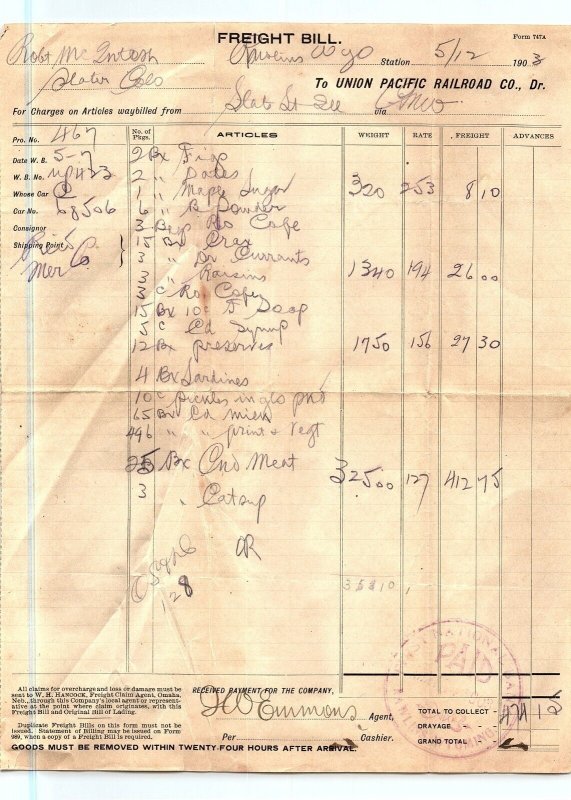 FREIGHT BILL.
Form 747A
Robt McIntosh Rawlins Wyo Station 5/12 1903
Slater Colo
To UNION PACIFIC RAILROAD CO., Dr.
For Charges on Articles waybilled from State St via
Pro. No. 467
Date W. B. 5-7
W. B. No. UP423
Whose Car
Car No. 68506
Consignor
Shipping Point
Mer Co
No. of Pkgs. ARTICLES WEIGHT RATE FREIGHT ADVANCES
2 Bx Figs
2 " Dates
1 " Maple Sugar 320 253 8 10
6 " B Powder
3 Bags Ro Cofe
15 Bx Crax
3 " Dr Currants
3 " Raisins 1340 194 26 00
3 c Ro Cofe
15 Bx 10c T Soap
5 c Cd Syrup
12 Bx preserves 1750 156 27 30
4 Bx Sardines
10 c pickles in gls
65 Bx Cd milk
496 " " & Vegt
25 Bx Cnd Meat 32500 127 412 75
3 " Catsup
OR
128
35810
PAID
NATIONAL
All claims for overcharge and loss or damage must be
sent to W. H. HANCOCK, Freight Claim Agent, Omaha,
Neb., through this Company's local agent or represent-
ative at the point where claim originates, with this
Freight Bill and Original Bill of Lading.
Duplicate Freight Bills on this form must not be
issued. Statement of Billing may be issued on Form
989, when a copy of a Freight Bill is required.
RECEIVED PAYMENT FOR THE COMPANY,
Emmons Agent,
Per Cashier.
TOTAL TO COLLECT -
DRAYAGE -
GRAND TOTAL -
GOODS MUST BE REMOVED WITHIN TWENTY-FOUR HOURS AFTER ARRIVAL.